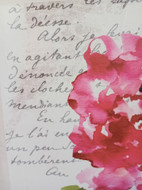 à travers les
la déesse.
Alors, je
en agitant
Dénoncé
les cloche
mendian
En
je l'ai en
un peu
tombèrent
Au